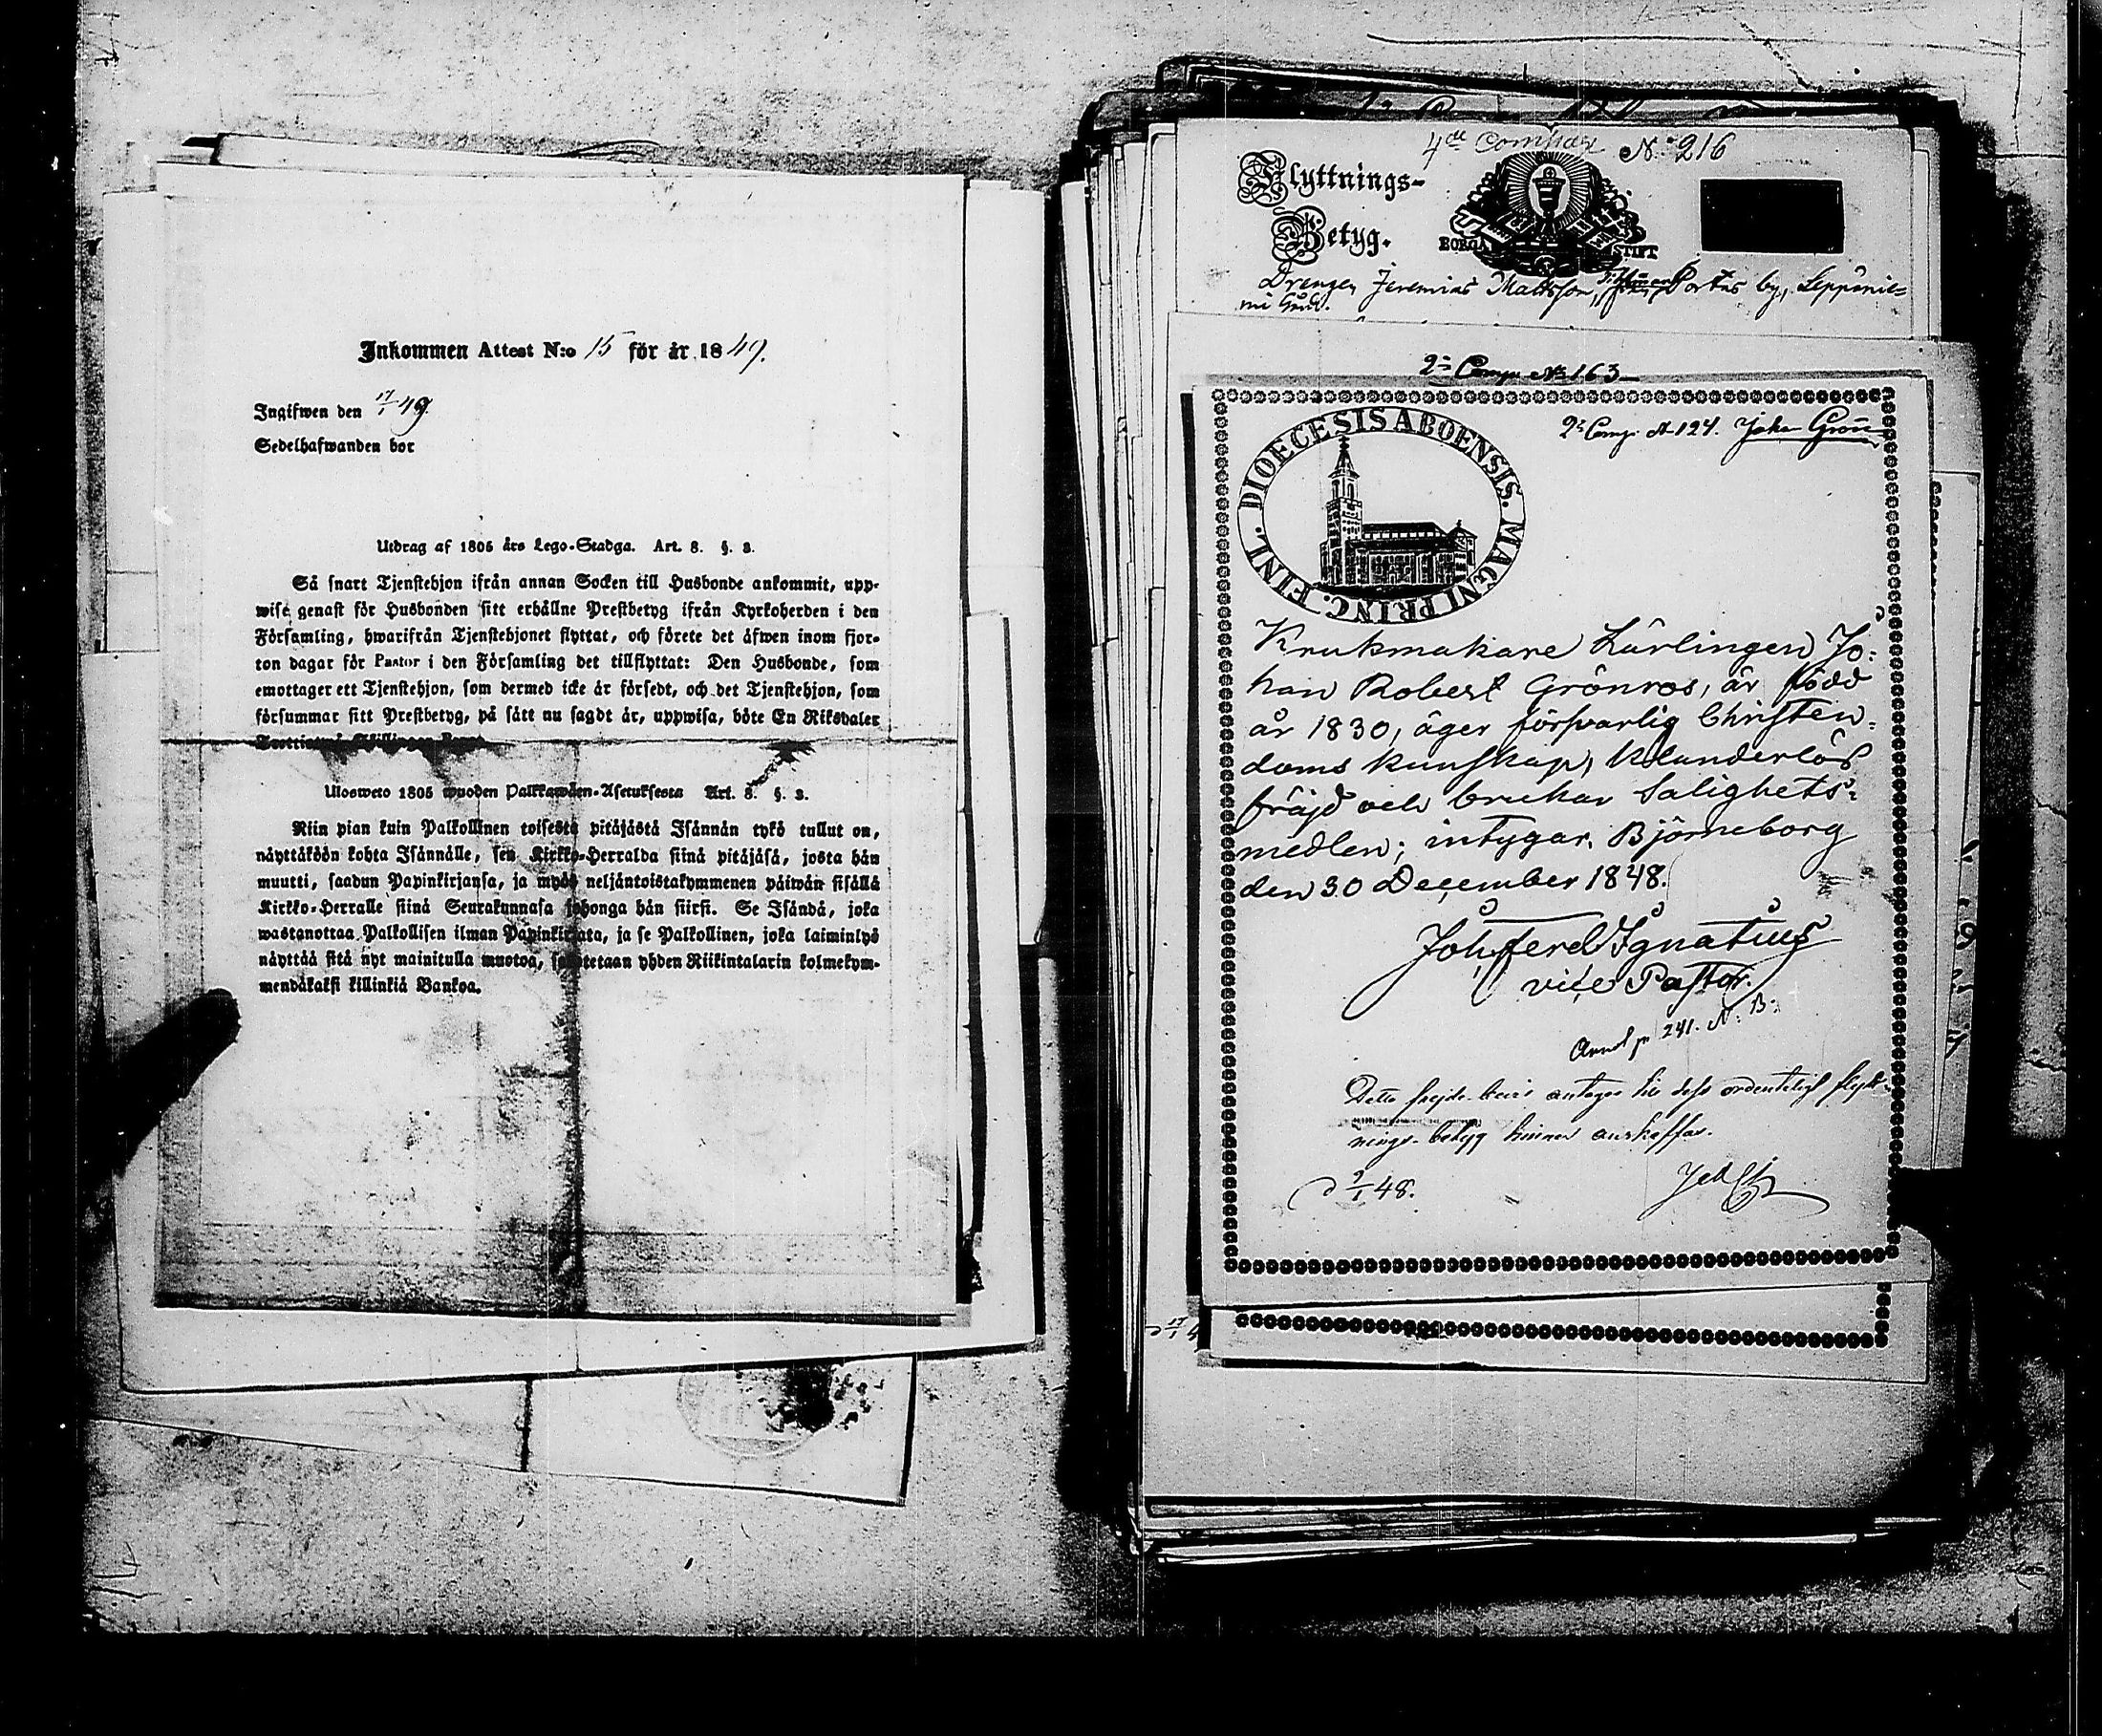 Inkommen Attest N:o 15 för år 1849.
Ingifwen den 17/1 49.
Sedelhafwanden bor
Utdrag af 1805 års Lego-Stadga. Art. 8. §. 3.
Så snart Tjenstehjon ifrån annan Socken till Husbonde ankommit, upp-
wise genast för Husbonden sitt erhållne Prestbetyg ifrån Kyrkoherden i den
Församling, hwarifrån Tjenstehjonet flyttat, och förete det äfwen inom fjor-
ton dagar för Pastor i den Församling det tillflyttat: Den Husbonde, som
emottager ett Tjenstehjon, som dermed icke är försedt, och det Tjenstehjon, som
försummar sitt Prestbetyg, på sätt nu sagdt är, uppwisa, böte En Riksdaler
Ulosweto 1805 wuoden Palkkawäen-Asetuksesta Art. 8. §. 3.
Niin pian kuin Palkollinen toisesta pitäjästä Isännän tykö tullut on,
näyttäköön kohta Isännälle, sen Kirkko-Herralda siinä pitäjäsä, josta hän
muutti, saadun Papinkirjansa, ja myös neljäntoistakymmenen päiwän sisällä
Kirkko-Herralle siinä Seurakunnasa johonga hän siirsi. Se Isändä, joka
wastanottaa Palkollisen ilman Papinkirjata, ja se Palkollinen, joka laiminlyö
näyttää sitä nyt mainitulla muotoa, sakotetaan yhden Riikintalarin kolmekym-
mendäkaksi killinkiä Bankoa.
4de Compan N:o 216
Flyttnings-
Betyg.
BORGÅ STIFT
Drengen Jeremias Mattsson, Portas by, Leppänie-
mi
2:a Comp. No 163
DIOECESIS ABOENSIS. MAGNI PRINC. FINL.
2:a Comp. No 124. Johan Grön
Krukmakare Lärlingen Jo:
han Robert Grönroos, är född
år 1830, äger försvarlig Christen:
doms kunskap, klanderlös
fräjd och brukar Salighets:
medlen; intygar. Björneborg
den 30 December 1848.
Joh Ferd Ignatius
vice Pastor.
Annot p 241. N: B:
Detta frejde-bevis antages tills dess ordentligt flytt-
nings-betyg hinner anskaffas.
d 9/1 48.